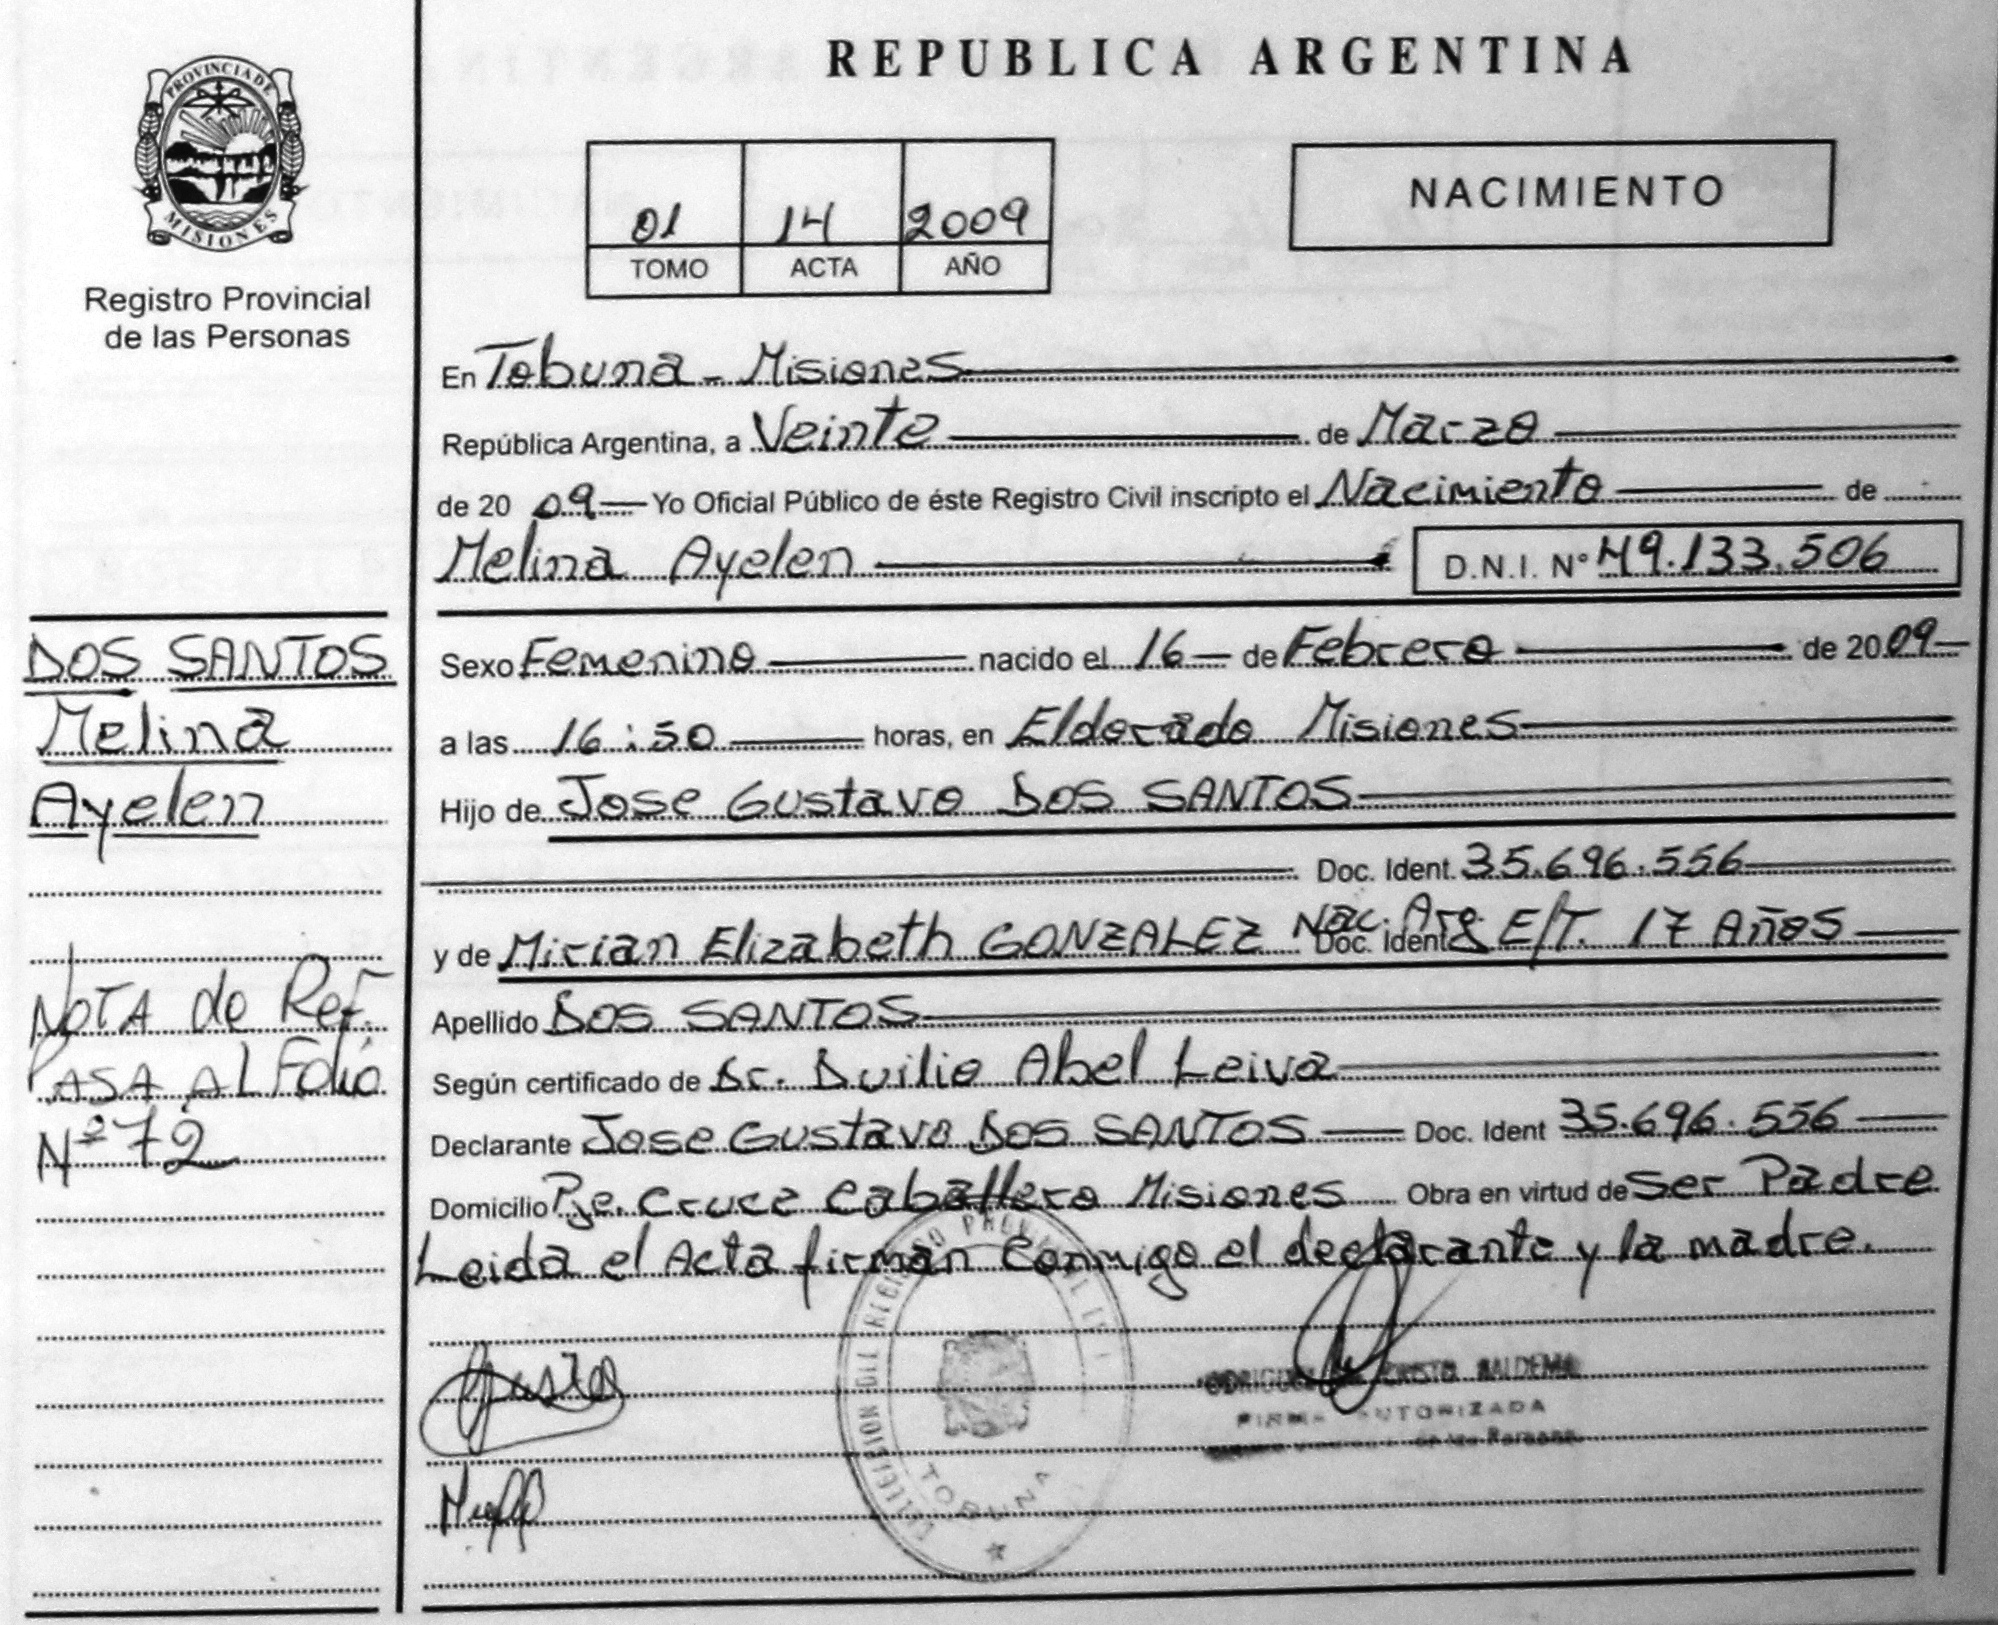 PROVINCIA DE
MISIONES
Registro Provincial
de las Personas
REPUBLICA ARGENTINA
01 14 2009
TOMO ACTA AÑO
NACIMIENTO
En Tobuna - Misiones
República Argentina, a Veinte de Marzo
de 20 09 Yo Oficial Público de éste Registro Civil inscripto el Nacimiento de
Melina Ayelen D.N.I. N° 49.133.506
DOS SANTOS
Melina
Ayelen
NOTA de Ref.
PASA AL Folio
Nº 72
Sexo Femenino nacido el 16 de Febrero de 2009
a las 16:50 horas, en Eldorado Misiones
Hijo de Jose Gustavo DOS SANTOS
Doc. Ident. 35.696.556
y de Mirian Elizabeth GONZALEZ Doc. Ident. Nac. Arg E/T. 17 Años
Apellido DOS SANTOS
Según certificado de Dr. Duilio Abel Leiva
Declarante Jose Gustavo DOS SANTOS Doc. Ident 35.696.556
Domicilio Pje. Cruce Caballero Misiones Obra en virtud de Ser Padre
Leida el Acta firman Conmigo el declarante y la madre.
TOBUNA
FIRMA AUTORIZADA